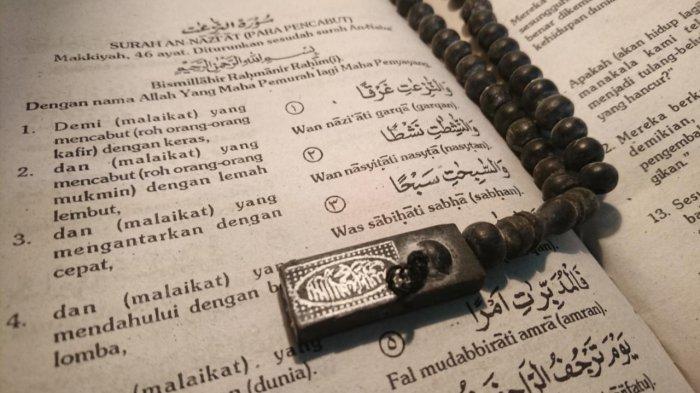 سُوْرَةُ النّٰزِعٰتِ
SURAH AN-NAZI'AT (PARA PENCABUT)
Makkiyah, 46 ayat. Diturunkan sesudah surah An-Naba'
بِسْمِ اللّٰهِ الرَّحْمٰنِ الرَّحِيْمِ
Bismillāhir Raḥmānir Raḥīm(i).
Dengan nama Allah Yang Maha Pemurah lagi Maha Penyayang
1. Demi (malaikat) yang
mencabut (roh orang-orang
kafir) dengan keras,
2. dan (malaikat) yang
mencabut (roh orang-orang
mukmin) dengan lemah
lembut,
3. dan (malaikat) yang
mengantarkan dengan
cepat,
4. dan (malaikat) yang
mendahului dengan
lomba,
(malaikat) yang
(dunia).
وَالنّٰزِعٰتِ غَرْقًا ①
Wan nāzi'āti garqā (garqan).
وَالنّٰشِطٰتِ نَشْطًا ②
Wan nāsyiṭāti nasyṭā (nasyṭan).
وَالسّٰبِحٰتِ سَبْحًا ③
Was sābiḥāti sabḥā (sabḥan).
فَالْمُدَبِّرٰتِ اَمْرًا ⑤
Fal mudabbirāti amrā (amran).
يَوْمَ تَرْجُفُ
Mereka
sesungguh
benar dikem
kehidupan dunia
Apakah (akan hidup lag
manakala kami te
menjadi tulang-bela
yang hancur?"
2. Mereka berk
demikian,
pengemba
gikan."
13. Sesu